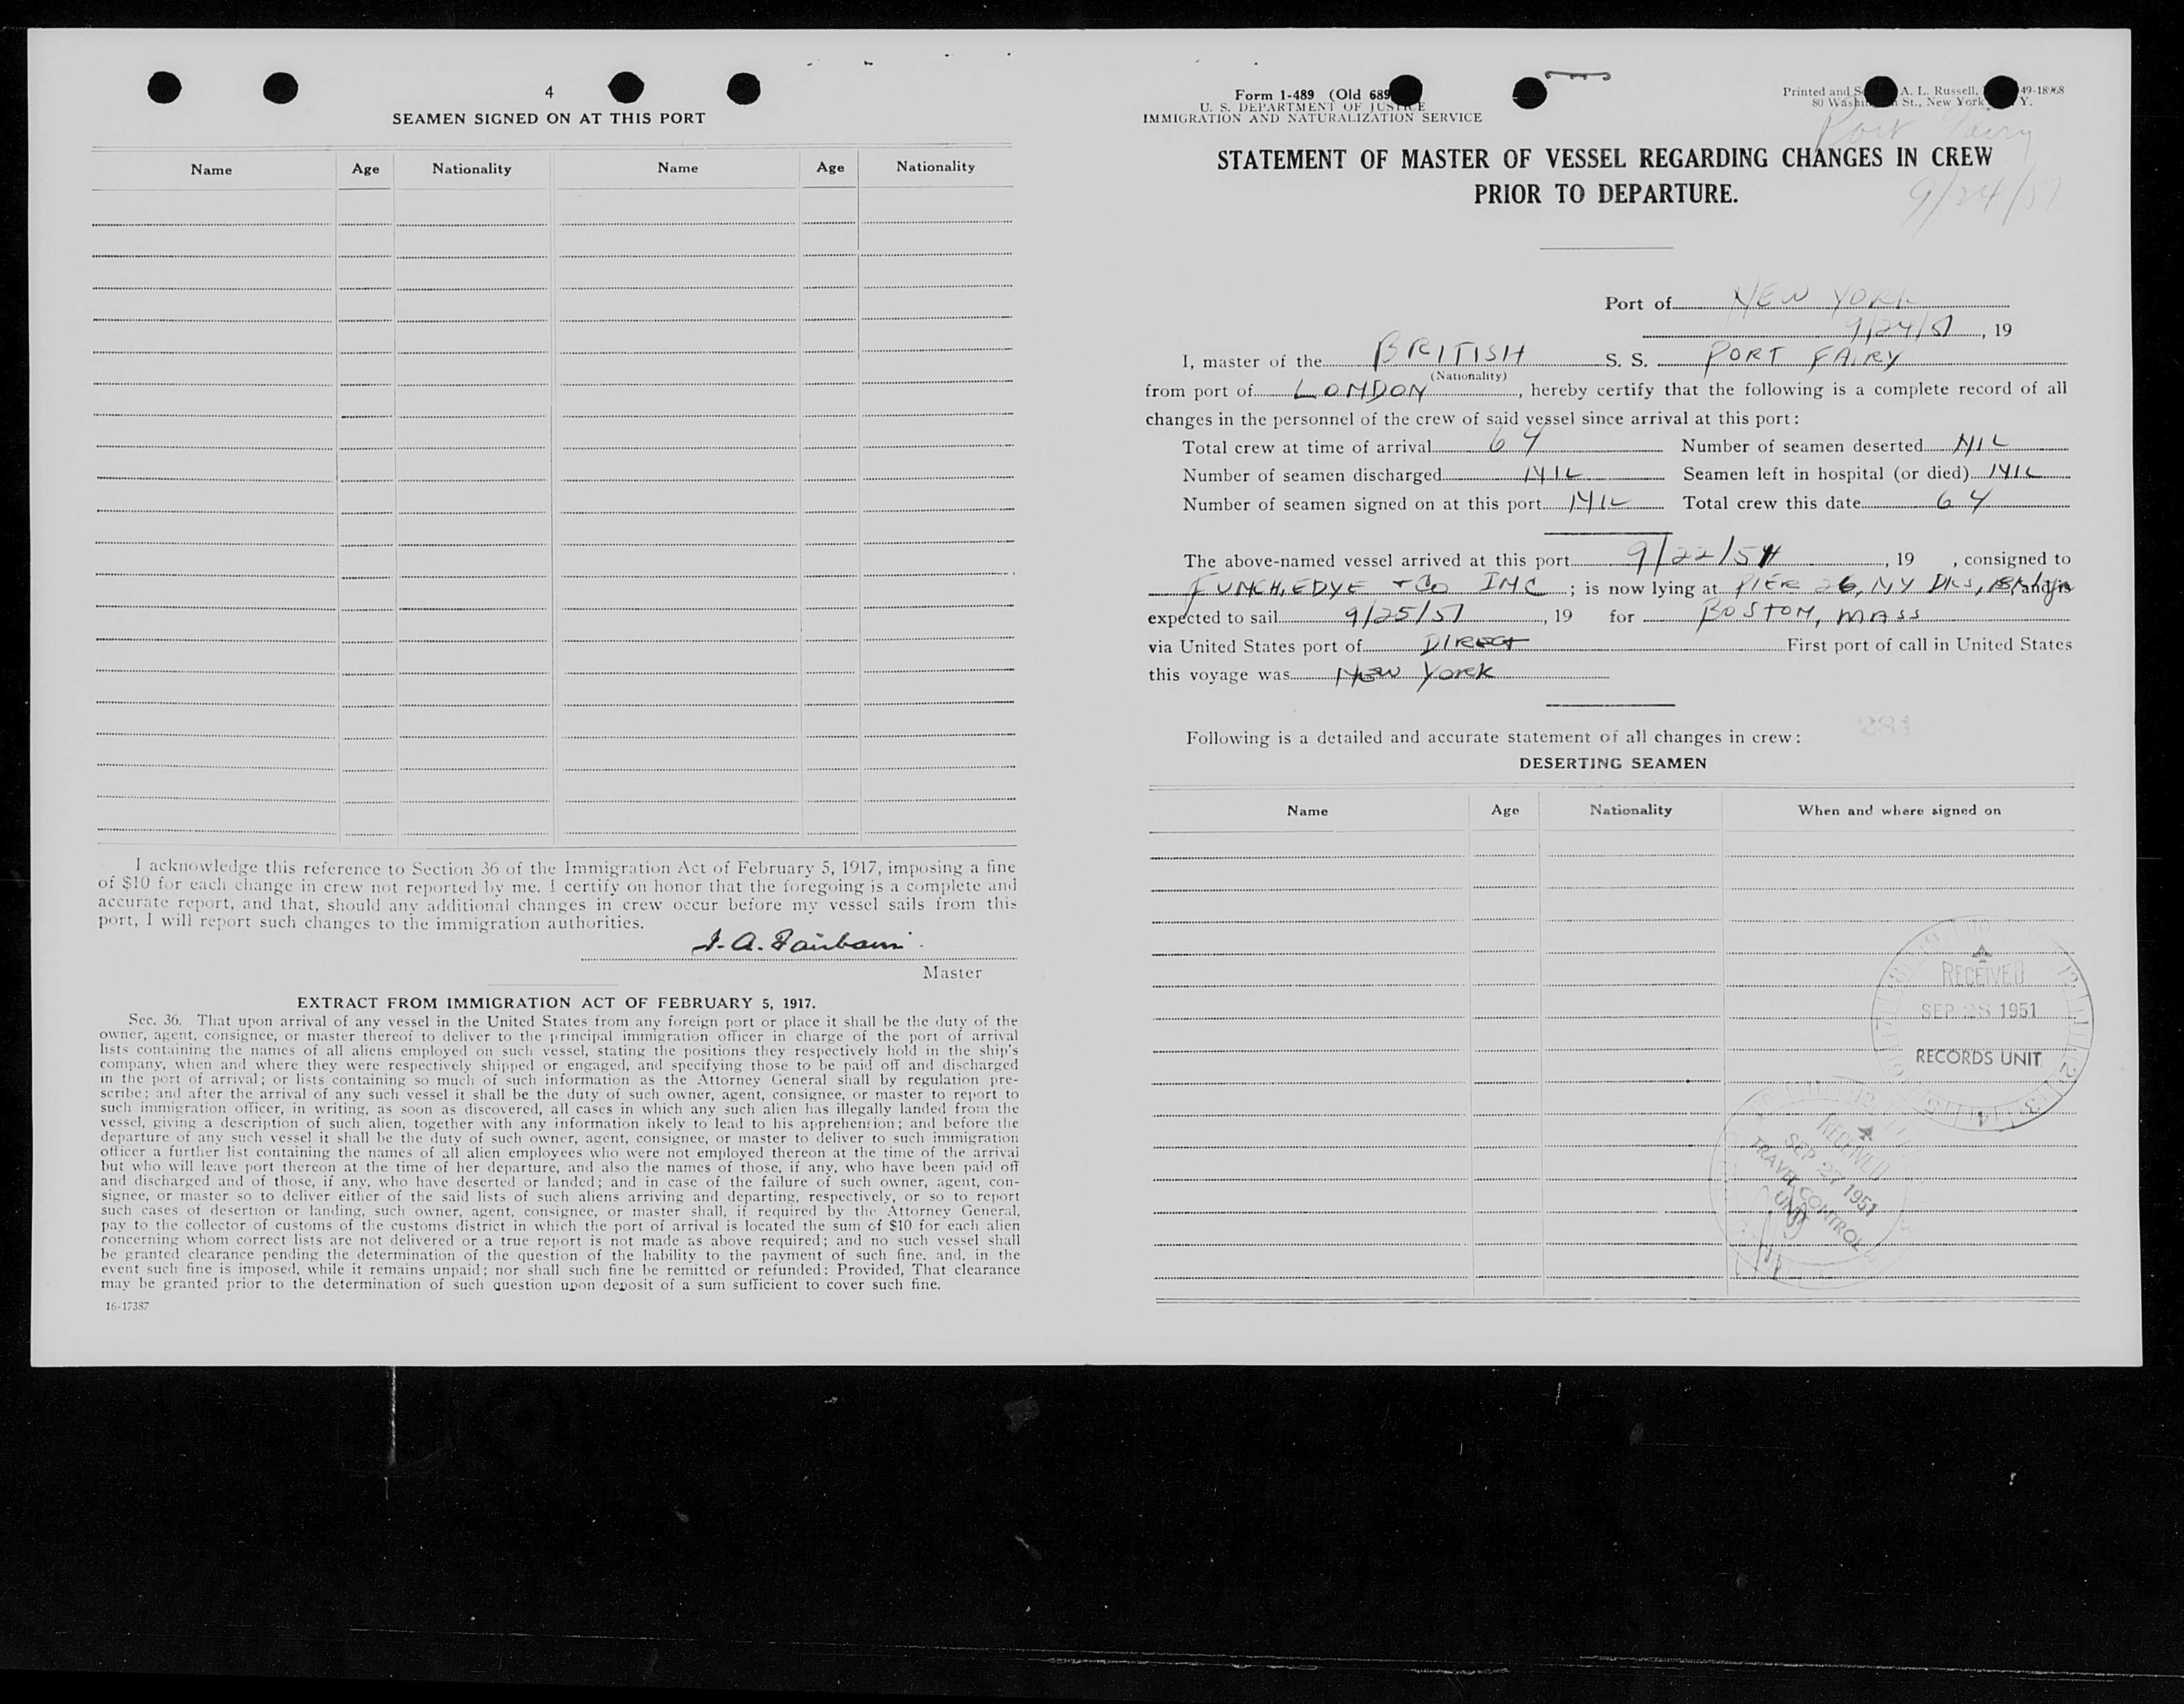 4
SEAMEN SIGNED ON AT THIS PORT
Name Age Nationality Name Age Nationality
I acknowledge this reference to Section 36 of the Immigration Act of February 5, 1917, imposing a fine
of $10 for each change in crew not reported by me. I certify on honor that the foregoing is a complete and
accurate report, and that, should any additional changes in crew occur before my vessel sails from this
port, I will report such changes to the immigration authorities.
Master
EXTRACT FROM IMMIGRATION ACT OF FEBRUARY 5, 1917.
Sec. 36. That upon arrival of any vessel in the United States from any foreign port or place it shall be the duty of the
owner, agent, consignee, or master thereof to deliver to the principal immigration officer in charge of the port of arrival
lists containing the names of all aliens employed on such vessel, stating the positions they respectively hold in the ship's
company, when and where they were respectively shipped or engaged, and specifying those to be paid off and discharged
in the port of arrival; or lists containing so much of such information as the Attorney General shall by regulation pre-
scribe; and after the arrival of any such vessel it shall be the duty of such owner, agent, consignee, or master to report to
such immigration officer, in writing, as soon as discovered, all cases in which any such alien has illegally landed from the
vessel, giving a description of such alien, together with any information likely to lead to his apprehension; and before the
departure of any such vessel it shall be the duty of such owner, agent, consignee, or master to deliver to such immigration
officer a further list containing the names of all alien employees who were not employed thereon at the time of the arrival
but who will leave port thereon at the time of her departure, and also the names of those, if any, who have been paid off
and discharged and of those, if any, who have deserted or landed; and in case of the failure of such owner, agent, con-
signee, or master so to deliver either of the said lists of such aliens arriving and departing, respectively, or so to report
such cases of desertion or landing, such owner, agent, consignee, or master shall, if required by the Attorney General,
pay to the collector of customs of the customs district in which the port of arrival is located the sum of $10 for each alien
concerning whom correct lists are not delivered or a true report is not made as above required; and no such vessel shall
be granted clearance pending the determination of the question of the liability to the payment of such fine, and, in the
event such fine is imposed, while it remains unpaid; nor shall such fine be remitted or refunded: Provided, That clearance
may be granted prior to the determination of such question upon deposit of a sum sufficient to cover such fine.
16-17387
Form I-489 (Old 689
U. S. DEPARTMENT OF JUSTICE
IMMIGRATION AND NATURALIZATION SERVICE
Printed and A. L. Russell, 49-18968
80 St., New York Y.
Port Fairy
STATEMENT OF MASTER OF VESSEL REGARDING CHANGES IN CREW
PRIOR TO DEPARTURE.
9/24/51
Port of NEW YORK
9/24/51, 19
I, master of the BRITISH S. S. PORT FAIRY
(Nationality)
from port of LONDON, hereby certify that the following is a complete record of all
changes in the personnel of the crew of said vessel since arrival at this port:
Total crew at time of arrival 64 Number of seamen deserted NIL
Number of seamen discharged NIL Seamen left in hospital (or died) NIL
Number of seamen signed on at this port NIL Total crew this date 64
The above-named vessel arrived at this port 9/22/51, 19 , consigned to
FUNCH, EDYE + Co INC; is now lying at PIER 26, NY DKS, Bklyn and is
expected to sail 9/25/51, 19 for BOSTON, MASS
via United States port of DIRECT First port of call in United States
this voyage was NEW YORK
281
Following is a detailed and accurate statement of all changes in crew:
DESERTING SEAMEN
Name Age Nationality When and where signed on
RECEIVED
SEP 28 1951
RECORDS UNIT
RECEIVED
SEP 27 1951
TRAVEL CONTROL
UNIT